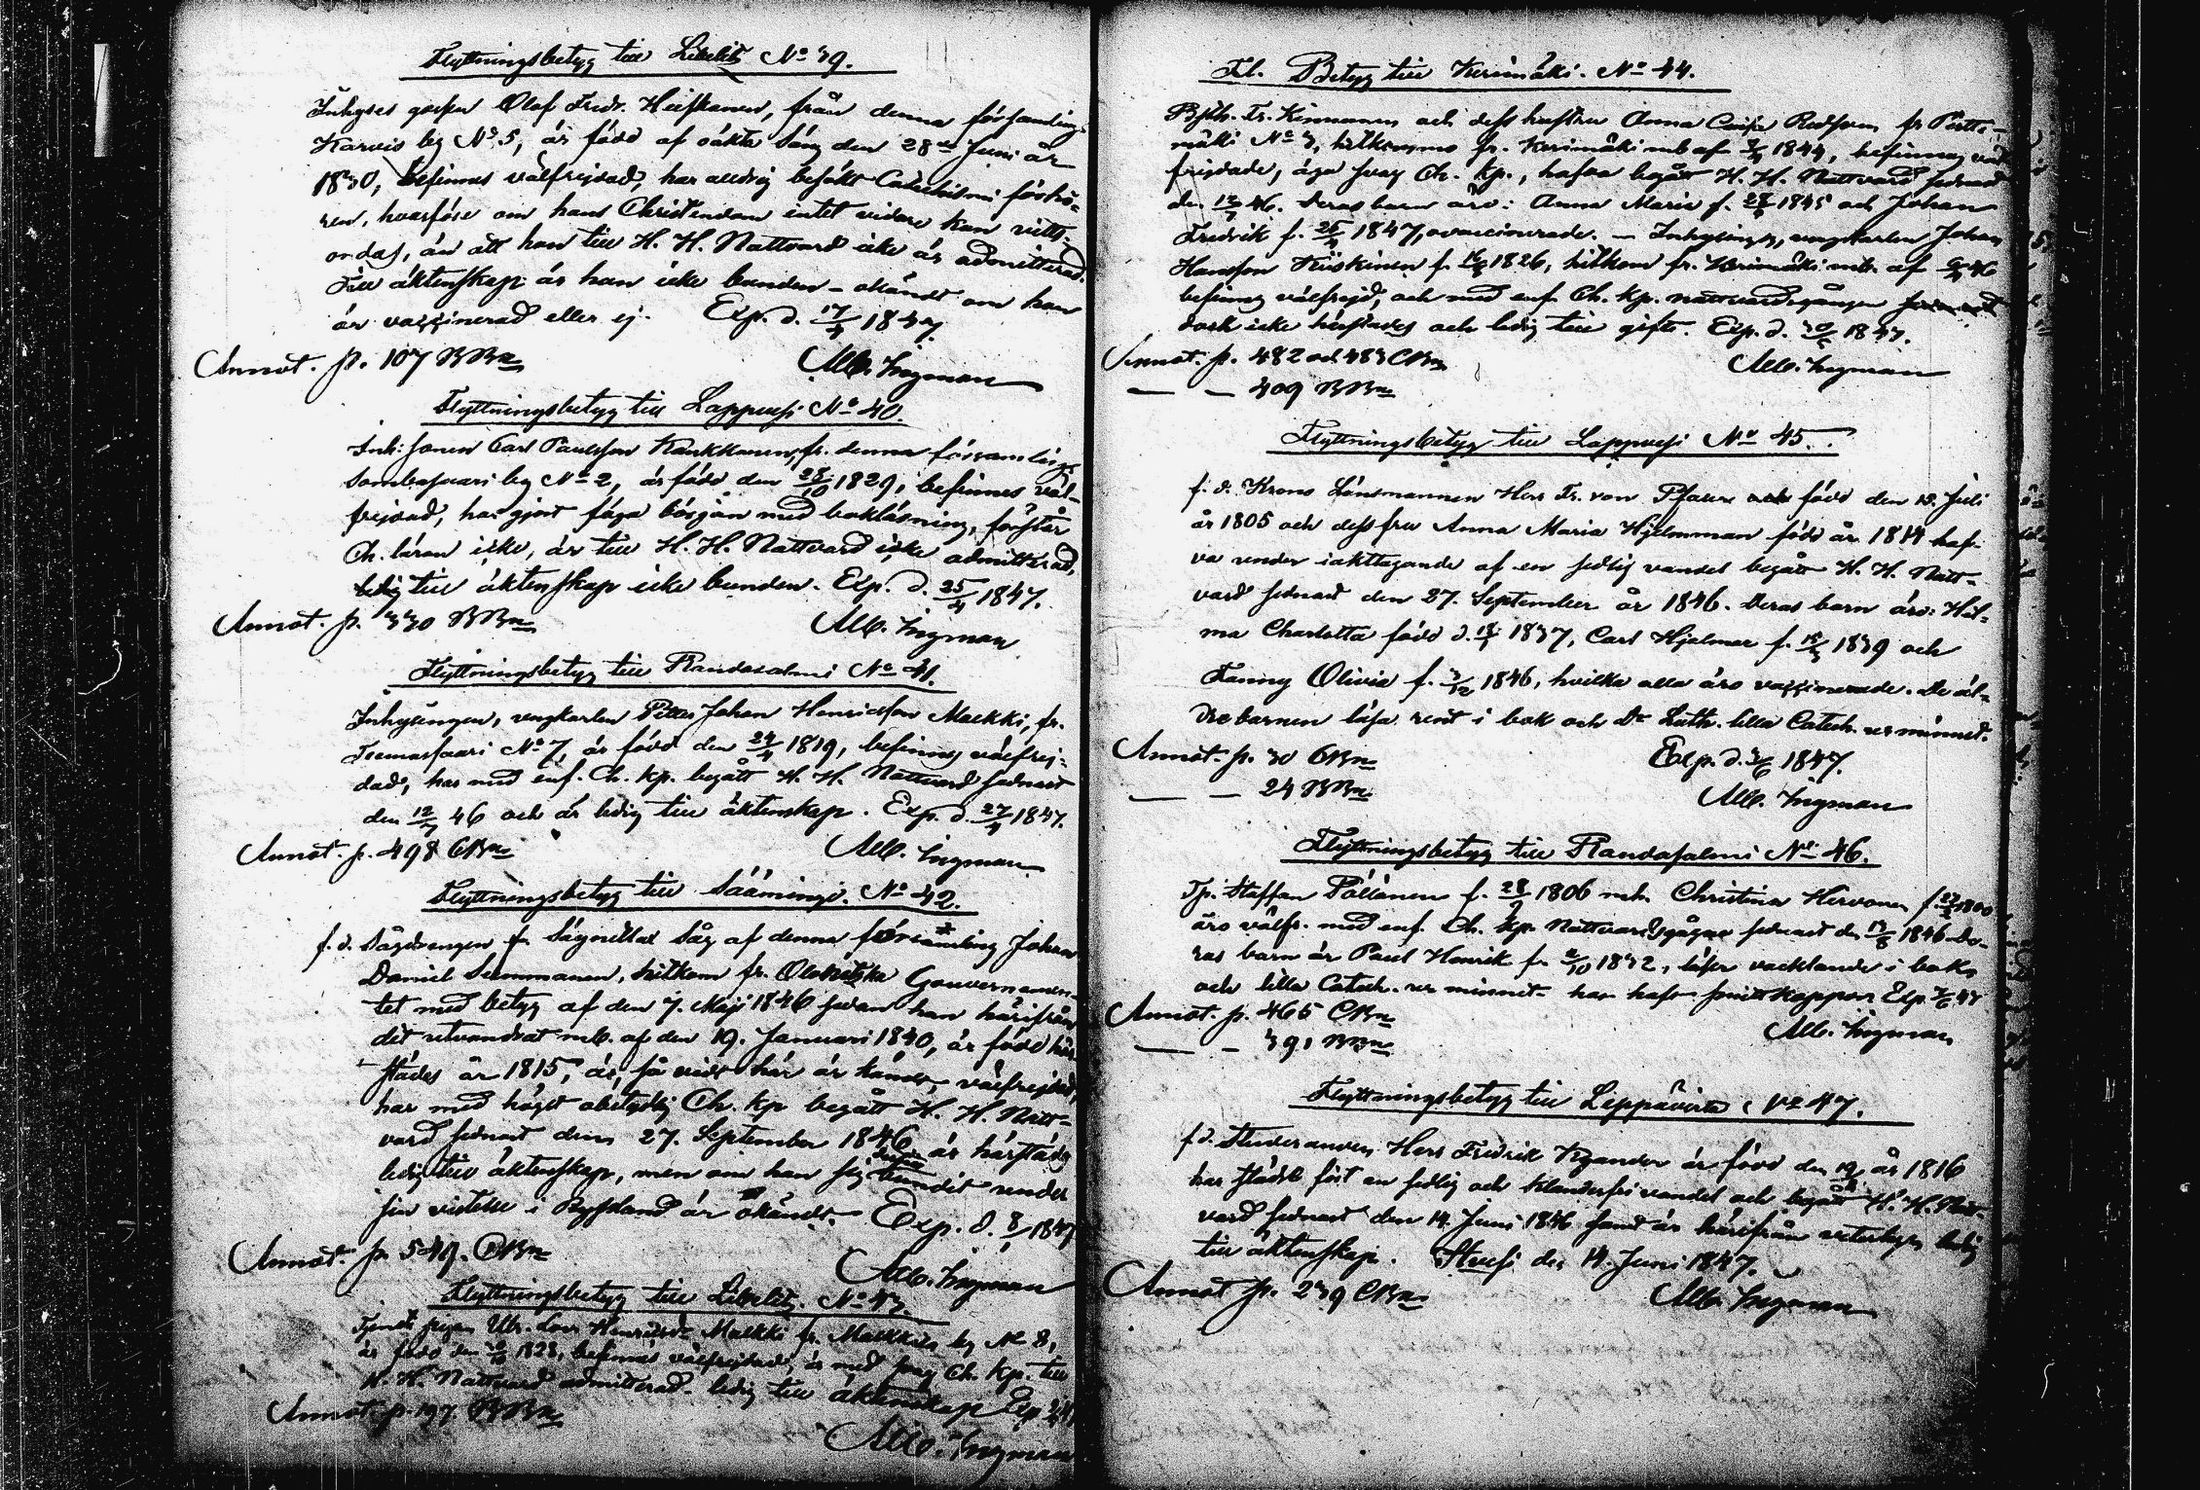 Flyttningsbetyg till Libelitz No 39.
Inhyses gossen Olof Fredr. Heiskanen, från denna församling
Karvis by No 5, är född af oäkta säng den 28de Juni år
1830, befinnes välfrejdad, har aldrig besökt Catechismi förhö-
ren, hvarföre om hans Christendom intet vidare kan vitts-
ordas, än att han till H. H. Nattvard icke är admitterad.
Till äktenskap är han icke bunden – okändt om han
är vaccinerad eller ej. Exp. d. 17/4 1847.
Annot. p. 107 BBn Alb. Ingman
Flyttningsbetyg till Lappvesi No 40.
Inh: sonen Carl Paulsson Kankkunen, fr. denna församlings
Sambasaari by No 2, är född den 28/10 1829, befinnes väl-
frejdad, har gjort föga början med bokläsning, förstår
Ch. läran icke, är till H. H. Nattvard icke admitterad,
till äktenskap icke bunden. Exp. d. 25/4 1847.
Annot. p. 330 BBn Alb. Ingman
Flyttningsbetyg till Randasalmi No 41.
Inhysingen, ungkarlen Johan Henricsson Malkki, fr.
No 7, är född den 24/4 1819, befinnes välfrej-
dad, har med enf. Ch. kp. begått H. H. Nattvard sednast
den 12/7 46 och är ledig till äktenskap. Exp. d. 27/4 1847.
Annot. p. 498 CBn Alb. Ingman
Flyttningsbetyg till Sääminge No 42.
f. d. Sågdrengen fr. såg af denna församling Johan
Daniel Summanen, hitkom fr. Olonetska Gouvernemen-
tet med betyg af den 7. Maji 1846 sedan han härifrån
dit utvandrat mb. af den 19. Januari 1840, är född här-
städes år 1815, är, så vidt här är kändt, välfrejdad,
har med högst obetydlig Ch. kp begått H. H. Natt-
vard sednast den 27. September 1846, är härstädes
ledig till äktenskap, men om han sig bundit under
sin vistelse i Ryssland är okändt. Exp. d. 8/5 1847
Annot. p. 549. CBn Alb. Ingman
Flyttningsbetyg till Libelitz. No 43.
Malkki fr. Malkkila by No 8,
är född den 1828, befinnes välfrejdad, är med svag Ch. kp. till
H. H. Nattvard admitterad. ledig till äktenskap Exp
Annot. p. 197 BBn
Alb. Ingman
Fl. Betyg till Kerimäki. No 44.
Fr. Kinnunen och dess hustru Anna Caisa fr Pertti-
mäki No 3, hitkomne fr. Kerimäki mb af 1844, befinnas väl-
frejdade, äga svag Ch. kp., hafva begått H. H. Nattvard sednast
den 12/7 46. Deras barn äro: Anna Maria f. 1845 och Johan
Fredrik f. 25/4 1847, ovaccinerade. – Inhysingen, ungkarlen Johan
Hansson Kiiskinen f. 1826, hitkom fr. Kerimäki mb. af 46
befinnes välfrejd, och med enf. Ch. kp. nattvardsgången
dock icke härstädes och ledig till gifte. Exp. d. 30/5 1847.
Annot. p. 482 och 483 CBn Alb. Ingman
— — 409 BBn
Flyttningsbetyg till Lappvesi No 45.
f. d. Krono Länsmannen Herr Fr. von Pfaler född den 12. Juli
år 1805 och dess fru Anna Maria Hjelmman född år 1814 haf-
va under iakttagande af en sedlig vandel begått H. H. Natt-
vard sednast den 27. September år 1846. Deras barn äro: Hil-
ma Charlotta född d. 1837, Carl Hjelmer f. 1839 och
Fanny Olivia f. 3/12 1846, hvilka alla äro vaccinerade. De äl-
dre barnen läsa rent i bok och Dr Luth. lilla Catech. ur minnet.
Annot. p. 30 CBn Exp. d. 3/6 1847.
— — 24 BBn. Alb. Ingman
Flyttningsbetyg till Randasalmi No 46.
Tp. Staffan Pöllänen f. 28/9 1806 och Christina Hirvonen f. 1800
äro välfr. med enf. Ch. kp. Nattvardsgågne sednast d. 1846. De-
ras barn är Paul Henrik f. 1832, läser vacklande i bok
och lilla Catech. ur minnet. har haft smittkoppor Exp. 47
Annot. p. 465 CBn Alb. Ingman
— — 391 BBn
Flyttningsbetyg till Leppävirta No 47.
f d. Studeranden, Herr Fredrik är född den år 1816
har städse fört en sedlig och klanderfri vandel och begått H. H. Natt-
vard sednast den 14. Juni 1846 samt är härifrån veterligen ledig
till äktenskap. den 14. Juni 1847.
Annot p. 239 CBn Alb. Ingman